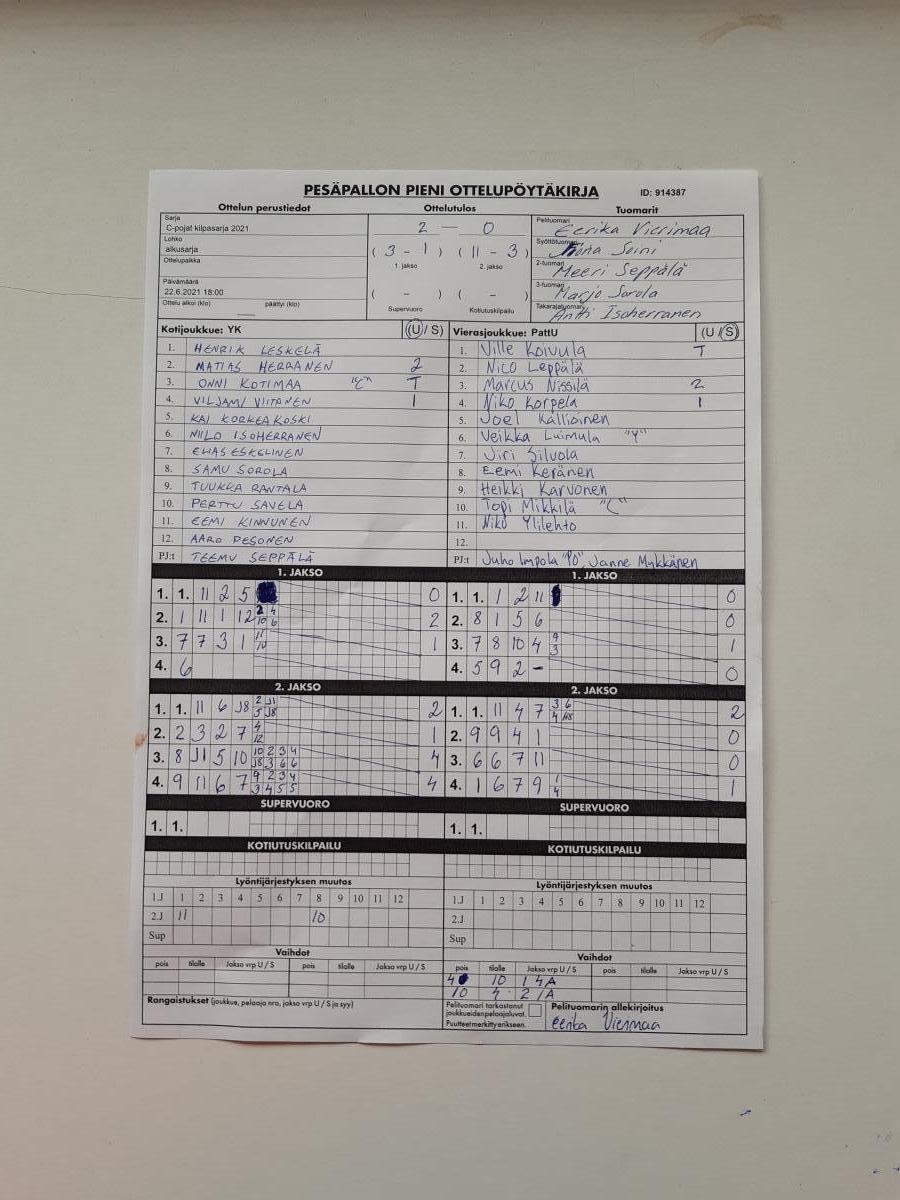 PESÄPALLON PIENI OTTELUPÖYTÄKIRJA ID: 914387
Ottelun perustiedot Ottelutulos Tuomarit
Sarja
C-pojat kilpasarja 2021
Lohko
alkusarja
Ottelupaikka
Päivämäärä
22.6.2021 18:00
Ottelu alkoi (klo) päättyi (klo)
2 — 0
( 3 - 1 ) ( 11 - 3 )
1. jakso 2. jakso
( - ) ( - )
Supervuoro Kotiutuskilpailu
Pelituomari Eerika Vierimaa
Syöttötuomari Soini
2-tuomari Meeri Seppälä
3-tuomari Marjo Sorola
Takarajatuomari Antti Isoherranen
Kotijoukkue: YK (U / S)
1. HENRIK LESKELÄ
2. MATIAS HERRANEN 2
3. ONNI KOTIMAA "C" T
4. VILJAMI VIITANEN 1
5. KAI KORKEAKOSKI
6. NIILO ISOHERRANEN
7. ELIAS ESKELINEN
8. SAMU SOROLA
9. TUUKKA RANTALA
10. PERTTU SAVELA
11. EEMI KINNUNEN
12. AARO PESONEN
PJ:t TEEMU SEPPÄLÄ
Vierasjoukkue: PattU (U / S)
1. Ville Koivula T
2. Nico Leppälä
3. Marcus Nissilä 2
4. Niko Korpela 1
5. Joel Kallioinen
6. Veikka Luimula "Y"
7. Jiri Siluola
8. Eemi Keränen
9. Heikki Karvonen
10. Topi Mikkilä "C"
11. Niko Ylilehto
12.
PJ:t Juho Impola "PO", Janne Mykkänen
1. JAKSO
1. 1. 11 2 5 0
2. 1 11 1 12 2 4 10 6 2
3. 7 7 3 1 11 10 1
4. 6
1. JAKSO
1. 1. 1 2 11 0
2. 8 1 5 6 0
3. 7 8 10 4 9 3 1
4. 5 9 2 - 0
2. JAKSO
1. 1. 11 6 J8 2 J1 5 J8 2
2. 2 3 2 7 4 12 1
3. 8 J1 5 10 10 2 3 4 J8 3 6 6 4
4. 9 11 6 7 9 2 3 4 3 4 5 5 4
2. JAKSO
1. 1. 11 4 7 3 6 4 2
2. 9 9 4 1 0
3. 6 6 7 11 0
4. 1 6 7 9 1 4 1
SUPERVUORO
1. 1.
SUPERVUORO
1. 1.
KOTIUTUSKILPAILU
KOTIUTUSKILPAILU
Lyöntijärjestyksen muutos
1.J 1 2 3 4 5 6 7 8 9 10 11 12
2.J 11 10
Sup
Lyöntijärjestyksen muutos
1.J 1 2 3 4 5 6 7 8 9 10 11 12
2.J
Sup
Vaihdot
pois tilalle Jakso vrp U / S pois tilalle Jakso vrp U / S
Vaihdot
pois tilalle Jakso vrp U / S pois tilalle Jakso vrp U / S
4 10 1 4A
10 4 2 1A
Rangaistukset (joukkue, pelaaja nro, jakso vrp U / S ja syy)
Pelituomari tarkastanut
joukkueiden pelaajaluvat.
Puutteet merkitty erikseen.
Pelituomarin allekirjoitus
Eerika Vierimaa